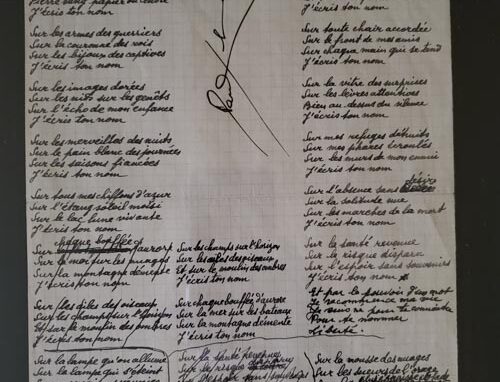 Pierre sang papier ou cendre
J'écris ton nom
Sur les armes des guerriers
Sur la couronne des rois
Sur les bijoux des captives
J'écris ton nom
Sur les images dorées
Sur les nids sur les genêts
Sur l'écho de mon enfance
J'écris ton nom
Sur les merveilles des nuits
Sur le pain blanc des journées
Sur les saisons fiancées
J'écris ton nom
Sur tous mes chiffons d'azur
Sur l'étang soleil moisi
Sur le lac lune vivante
J'écris ton nom
chaque bouffée
Sur d'aurore
Sur la mer sur les nuages
Sur la montagne démente
J'écris ton nom
Sur les ailes des oiseaux
Sur les champs sur l'horizon
Et sur le moulin des ombres
J'écris ton nom
Sur la lampe qu'on allume
Sur la lampe qui s'éteint
Paul
Sur les champs sur l'horizon
Sur les ailes des oiseaux
Et sur le moulin des ombres
J'écris ton nom
Sur chaque bouffée d'aurore
Sur la mer sur les bateaux
Sur la montagne démente
J'écris ton nom
Sur la santé revenue
Sur le risque disparu
Sur l'espoir sans souvenirs
J'écris ton nom
Sur toute chair accordée
Sur le front de mes amis
Sur chaque main qui se tend
J'écris ton nom
Sur la vitre des surprises
Sur les lèvres attentives
Bien au dessus du silence
J'écris ton nom
Sur mes refuges détruits
Sur mes phares écroulés
Sur les murs de mon ennui
J'écris ton nom
désir
Sur l'absence sans
Sur la solitude nue
Sur les marches de la mort
J'écris ton nom
Sur la santé revenue
Sur le risque disparu
Sur l'espoir sans souvenirs
J'écris ton nom
Et par le pouvoir d'un mot
Je recommence ma vie
Je suis né pour te connaître
Pour te nommer
Liberté.
Sur la mousse des nuages
Sur les sueurs de l'orage